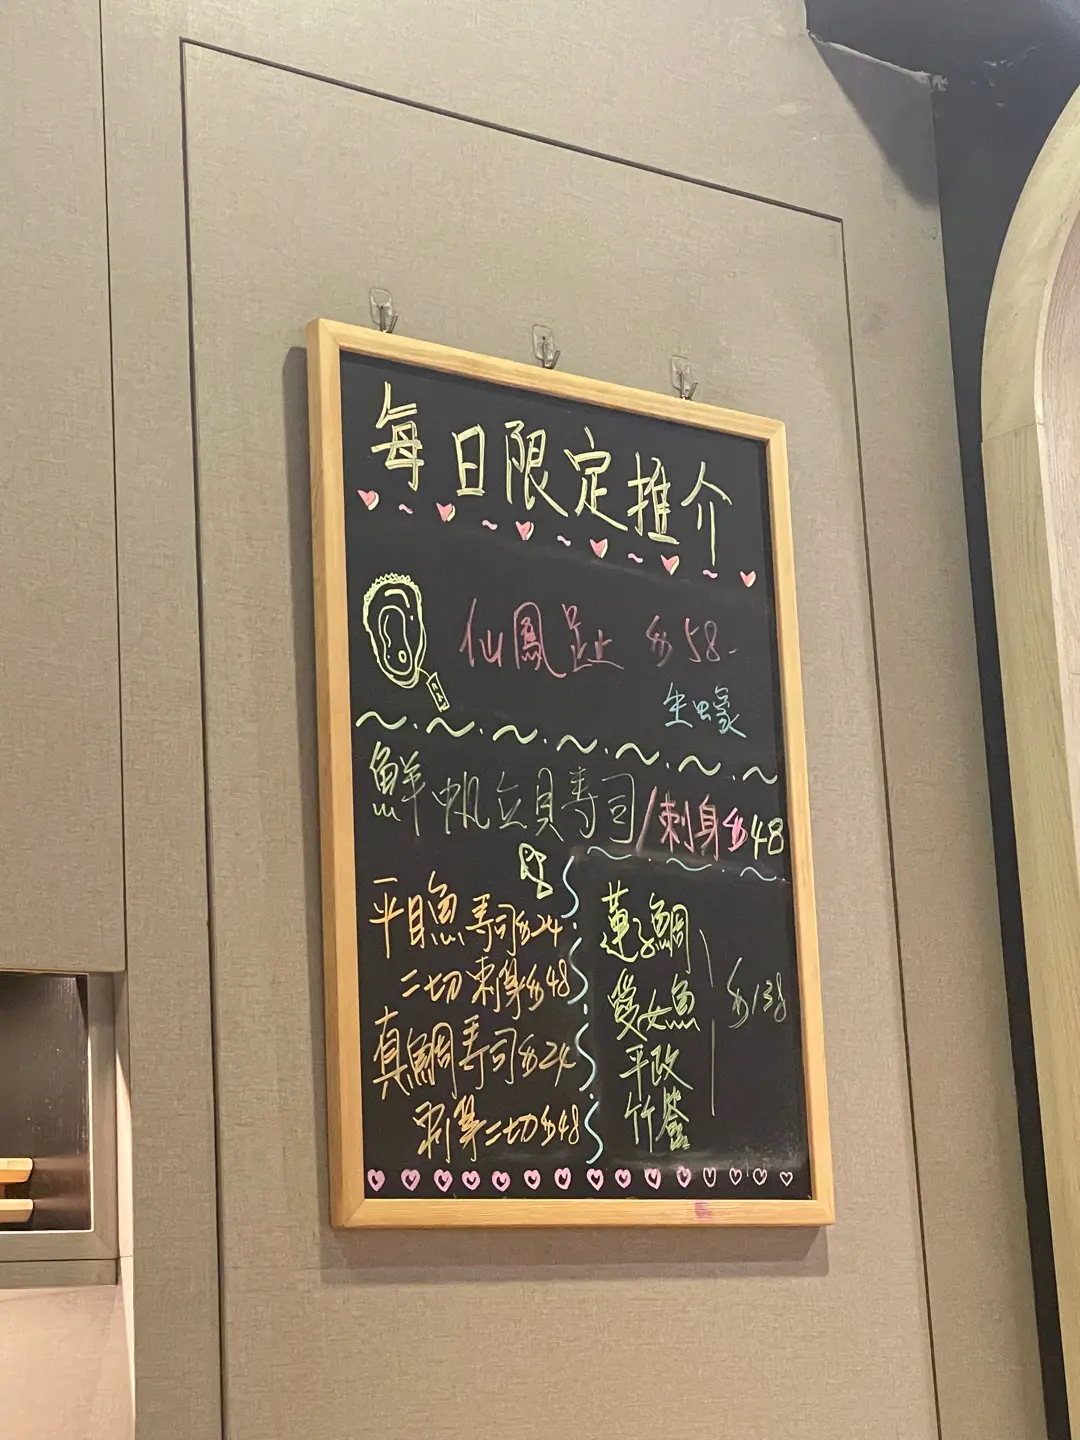 每日限定推介
仙鳳趾 $58-
生蠔
鮮帆立貝壽司/刺身$48
平目魚壽司$24
二切刺身$48
真鯛壽司$24
刺身二切$48
蓮子鯛
雙女魚
平政
竹簽
$138